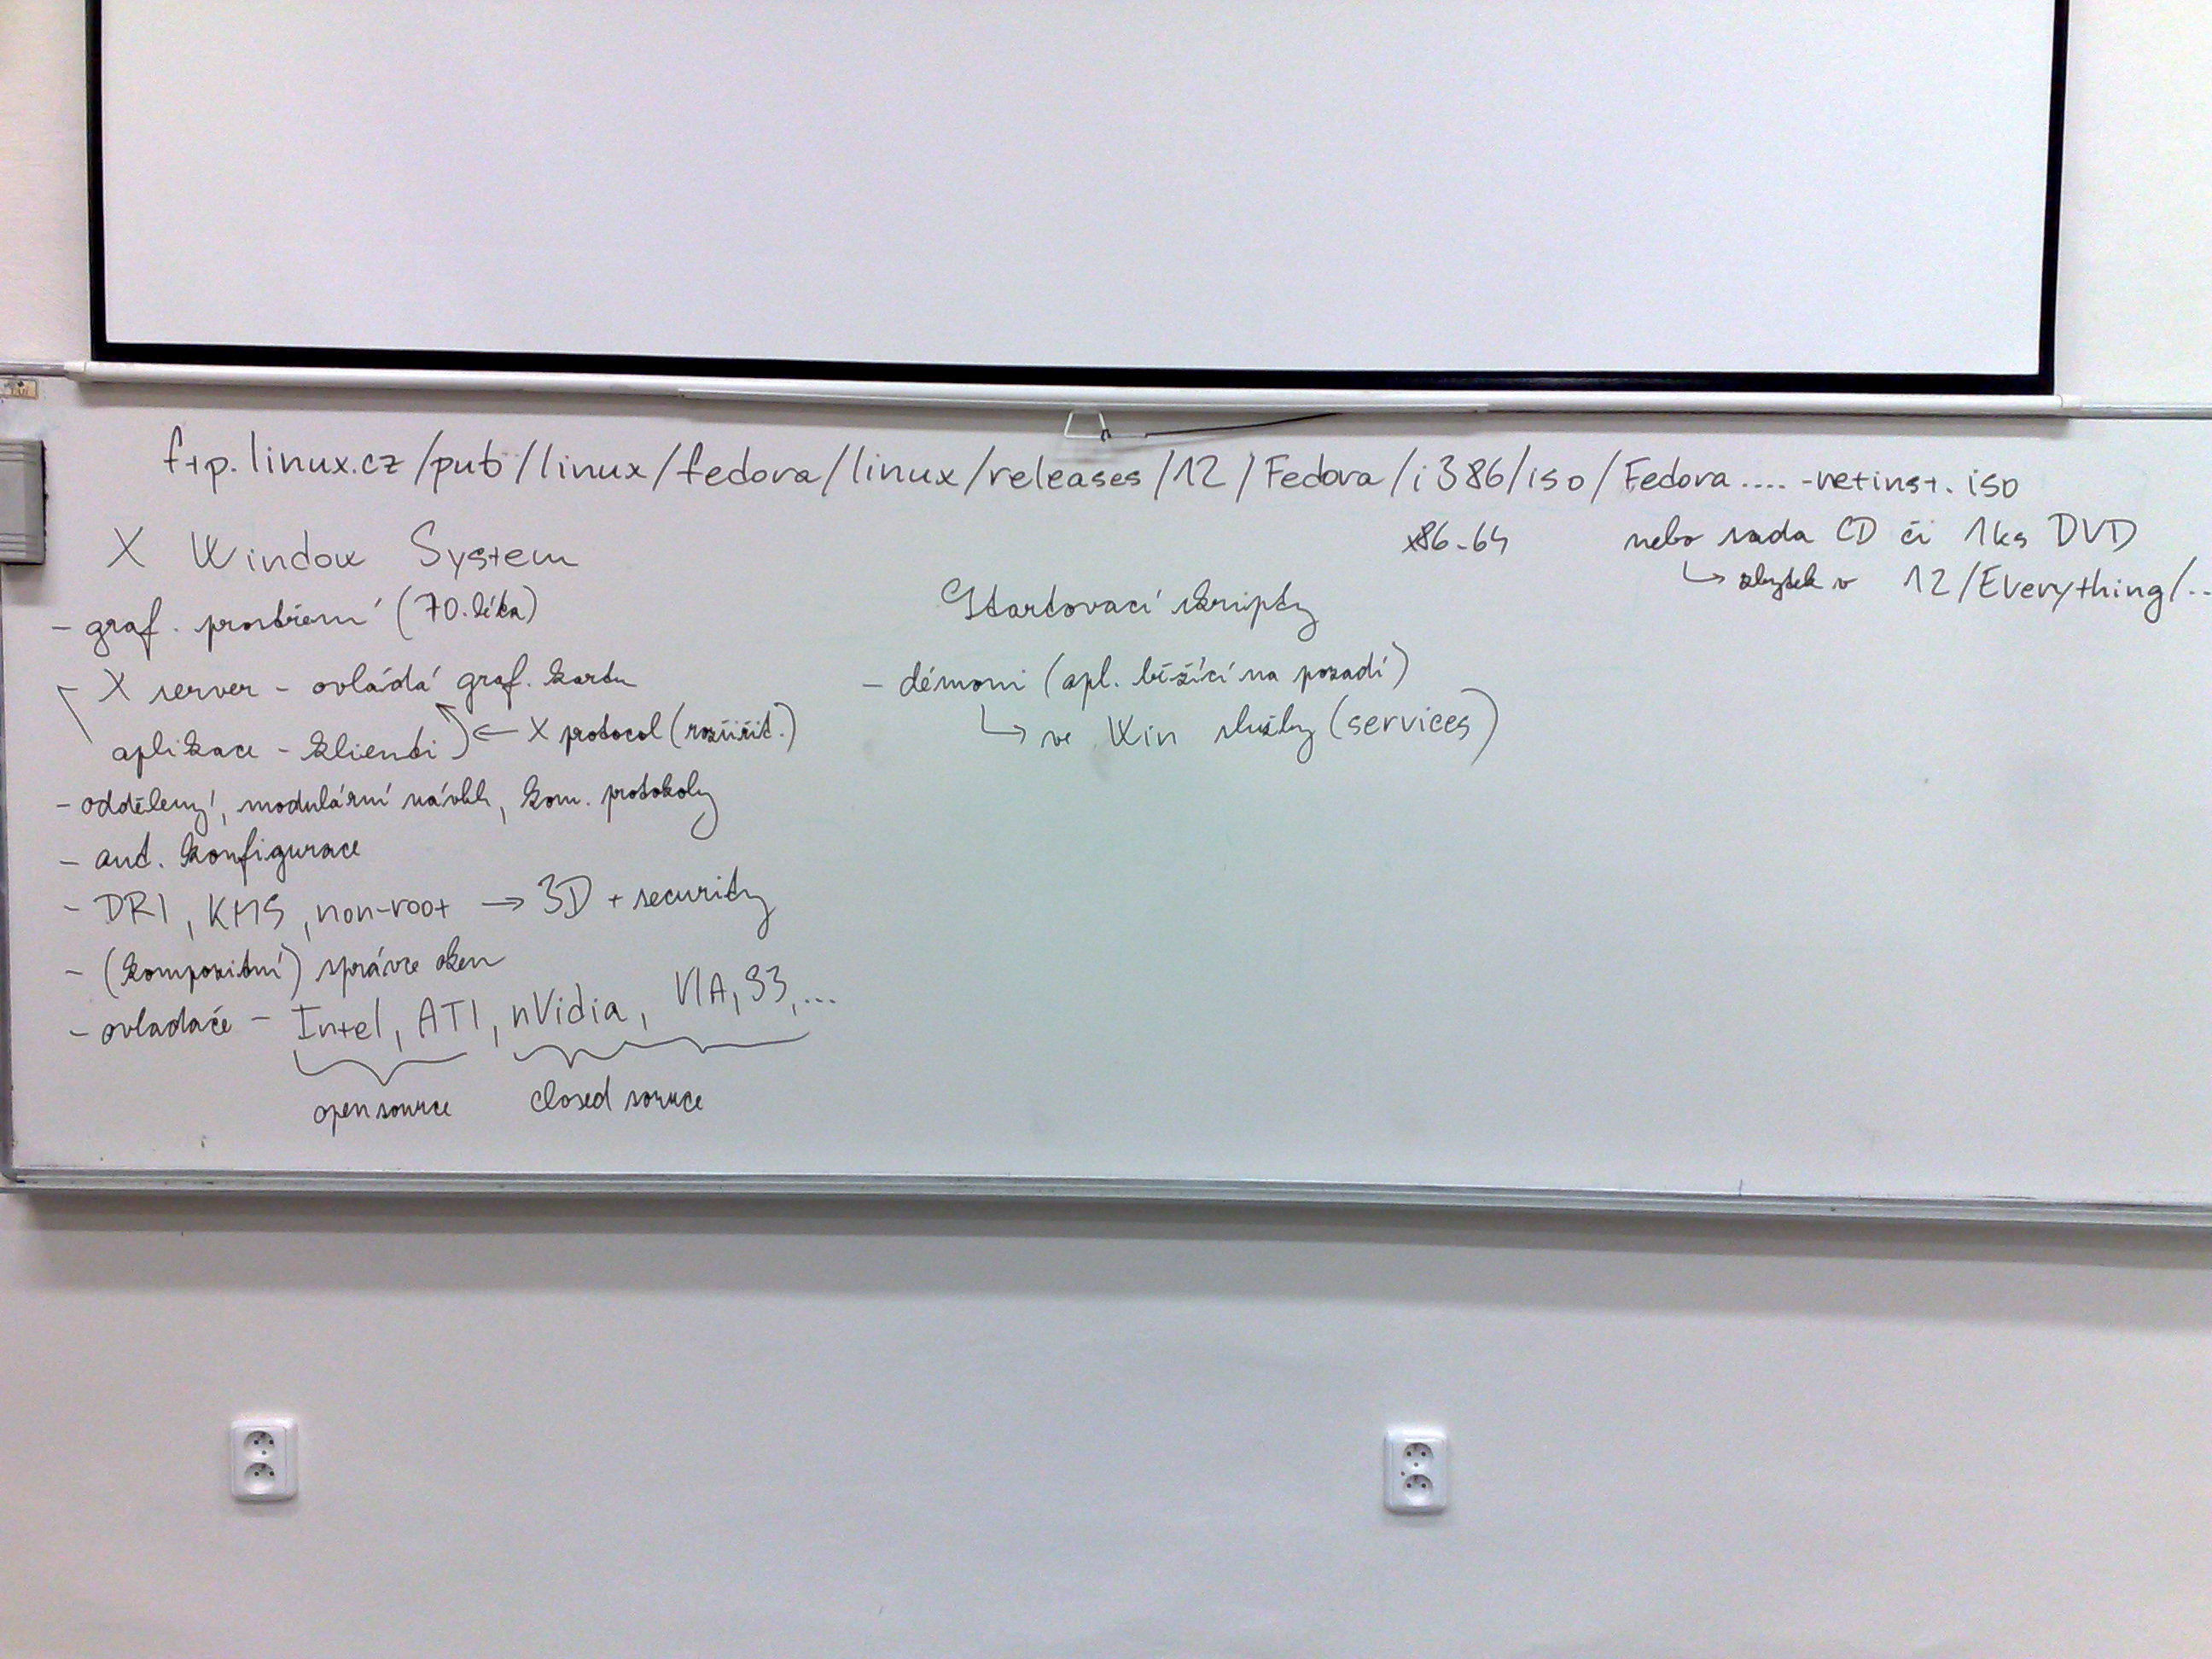 ftp.linux.cz/pub/linux/fedora/linux/releases/12/Fedora/i386/iso/Fedora....-netinst.iso
x86-64
nebo sada CD či 1ks DVD
↳ zbytek v 12/Everything/..
X Window System
- graf. prostření (70. léta)
X server - ovládá graf. kartu
aplikace - klienti ← X protocol (rozšiřit.)
- oddělený, modulární návrh, kom. protokoly
- aut. konfigurace
- DRI, KMS, non-root → 3D + security
- (kompozitní) správce oken
- ovladače - Intel, ATI, nVidia, VIA, S3, ...
opensource closed source
Startovací skripty
- démoni (apl. běžící na pozadí)
↳ ve Win služby (services)